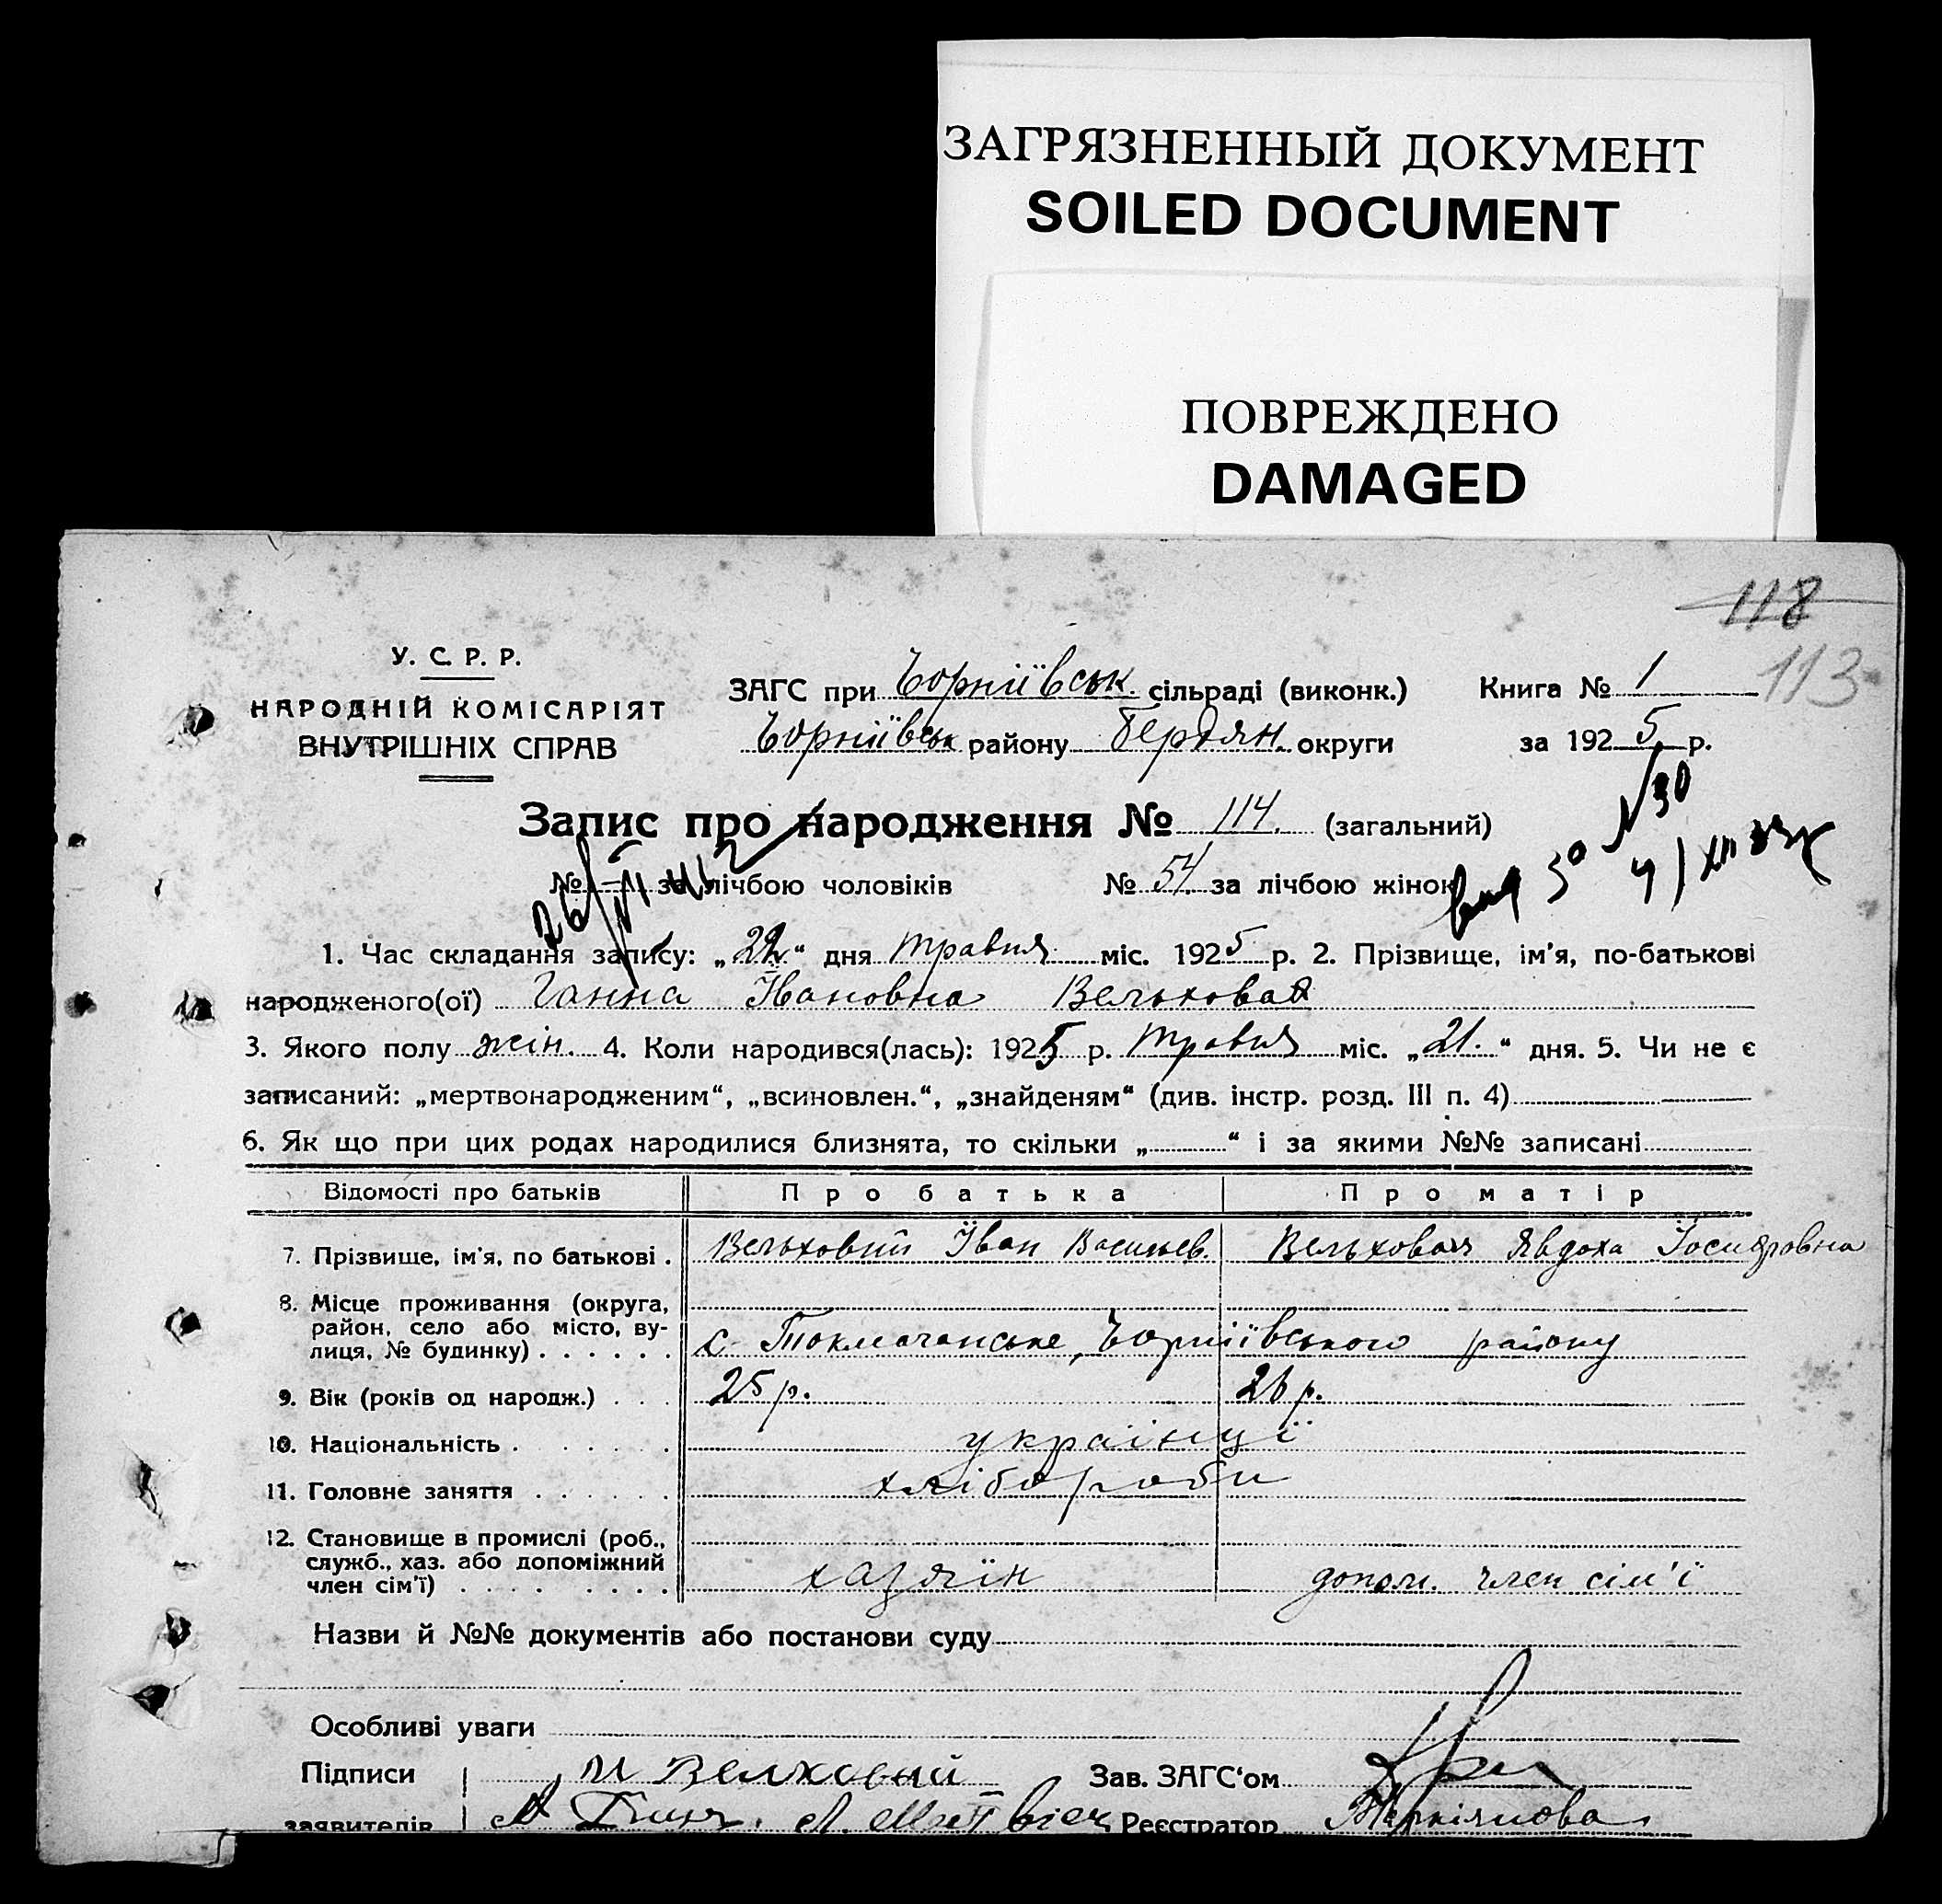 ЗАГРЯЗНЕННЫЙ ДОКУМЕНТ
SOILED DOCUMENT
ПОВРЕЖДЕНО
DAMAGED
118
113
У. С. Р. Р.
НАРОДНІЙ КОМІСАРІЯТ
ВНУТРІШНІХ СПРАВ
ЗАГС при Чорніївськ. сільраді (виконк.) Книга № 1
Чорніївськ району Бердян. округи за 1925 р.
Запис про народження № 114. (загальний)
№ — за лічбою чоловіків № 54 за лічбою жінок
1. Час складання запису: „22“ дня травня міс. 1925 р. 2. Прізвище, ім'я, по-батькові
народженого(ої) Ганна Івановна Вельховая
3. Якого полу жін. 4. Коли народився(лась): 1925 р. травня міс. „21.“ дня. 5. Чи не є
записаний: „мертвонародженим“, „всиновлен.“, „знайденям“ (див. інстр. розд. III п. 4)
6. Як що при цих родах народилися близнята, то скільки „ “ і за якими №№ записані
Відомості про батьків Про батька Про матір
7. Прізвище, ім'я, по батькові . Вельховий Іван Васильев. Вельховая Явдоха Іосифовна
8. Місце проживання (округа,
район, село або місто, ву-
лиця, № будинку) . . . . . . с. Токмачанське, Чорніївського району
9. Вік (років од народж.) . . . 25 р. 26 р.
10. Національність . . . . . . українці
11. Головне заняття . . . . . . хлібороби
12. Становище в промислі (роб.,
служб., хаз. або допоміжний
член сім'ї) . . . . . . . . . хазяїн допом. член сім'ї
Назви й №№ документів або постанови суду
Особливі уваги
Підписи И Велховий Зав. ЗАГС'ом
заявителів Реєстратор